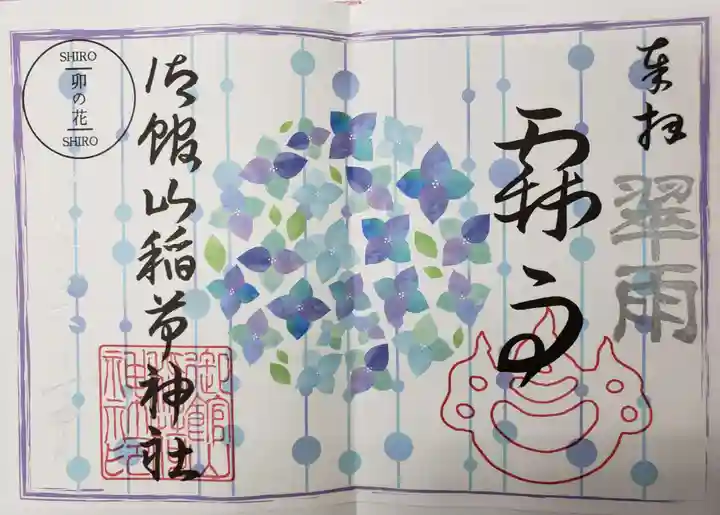 奉拝
翠雨
霖雨
御館山稲荷神社
SHIRO
卯の花
SHIRO